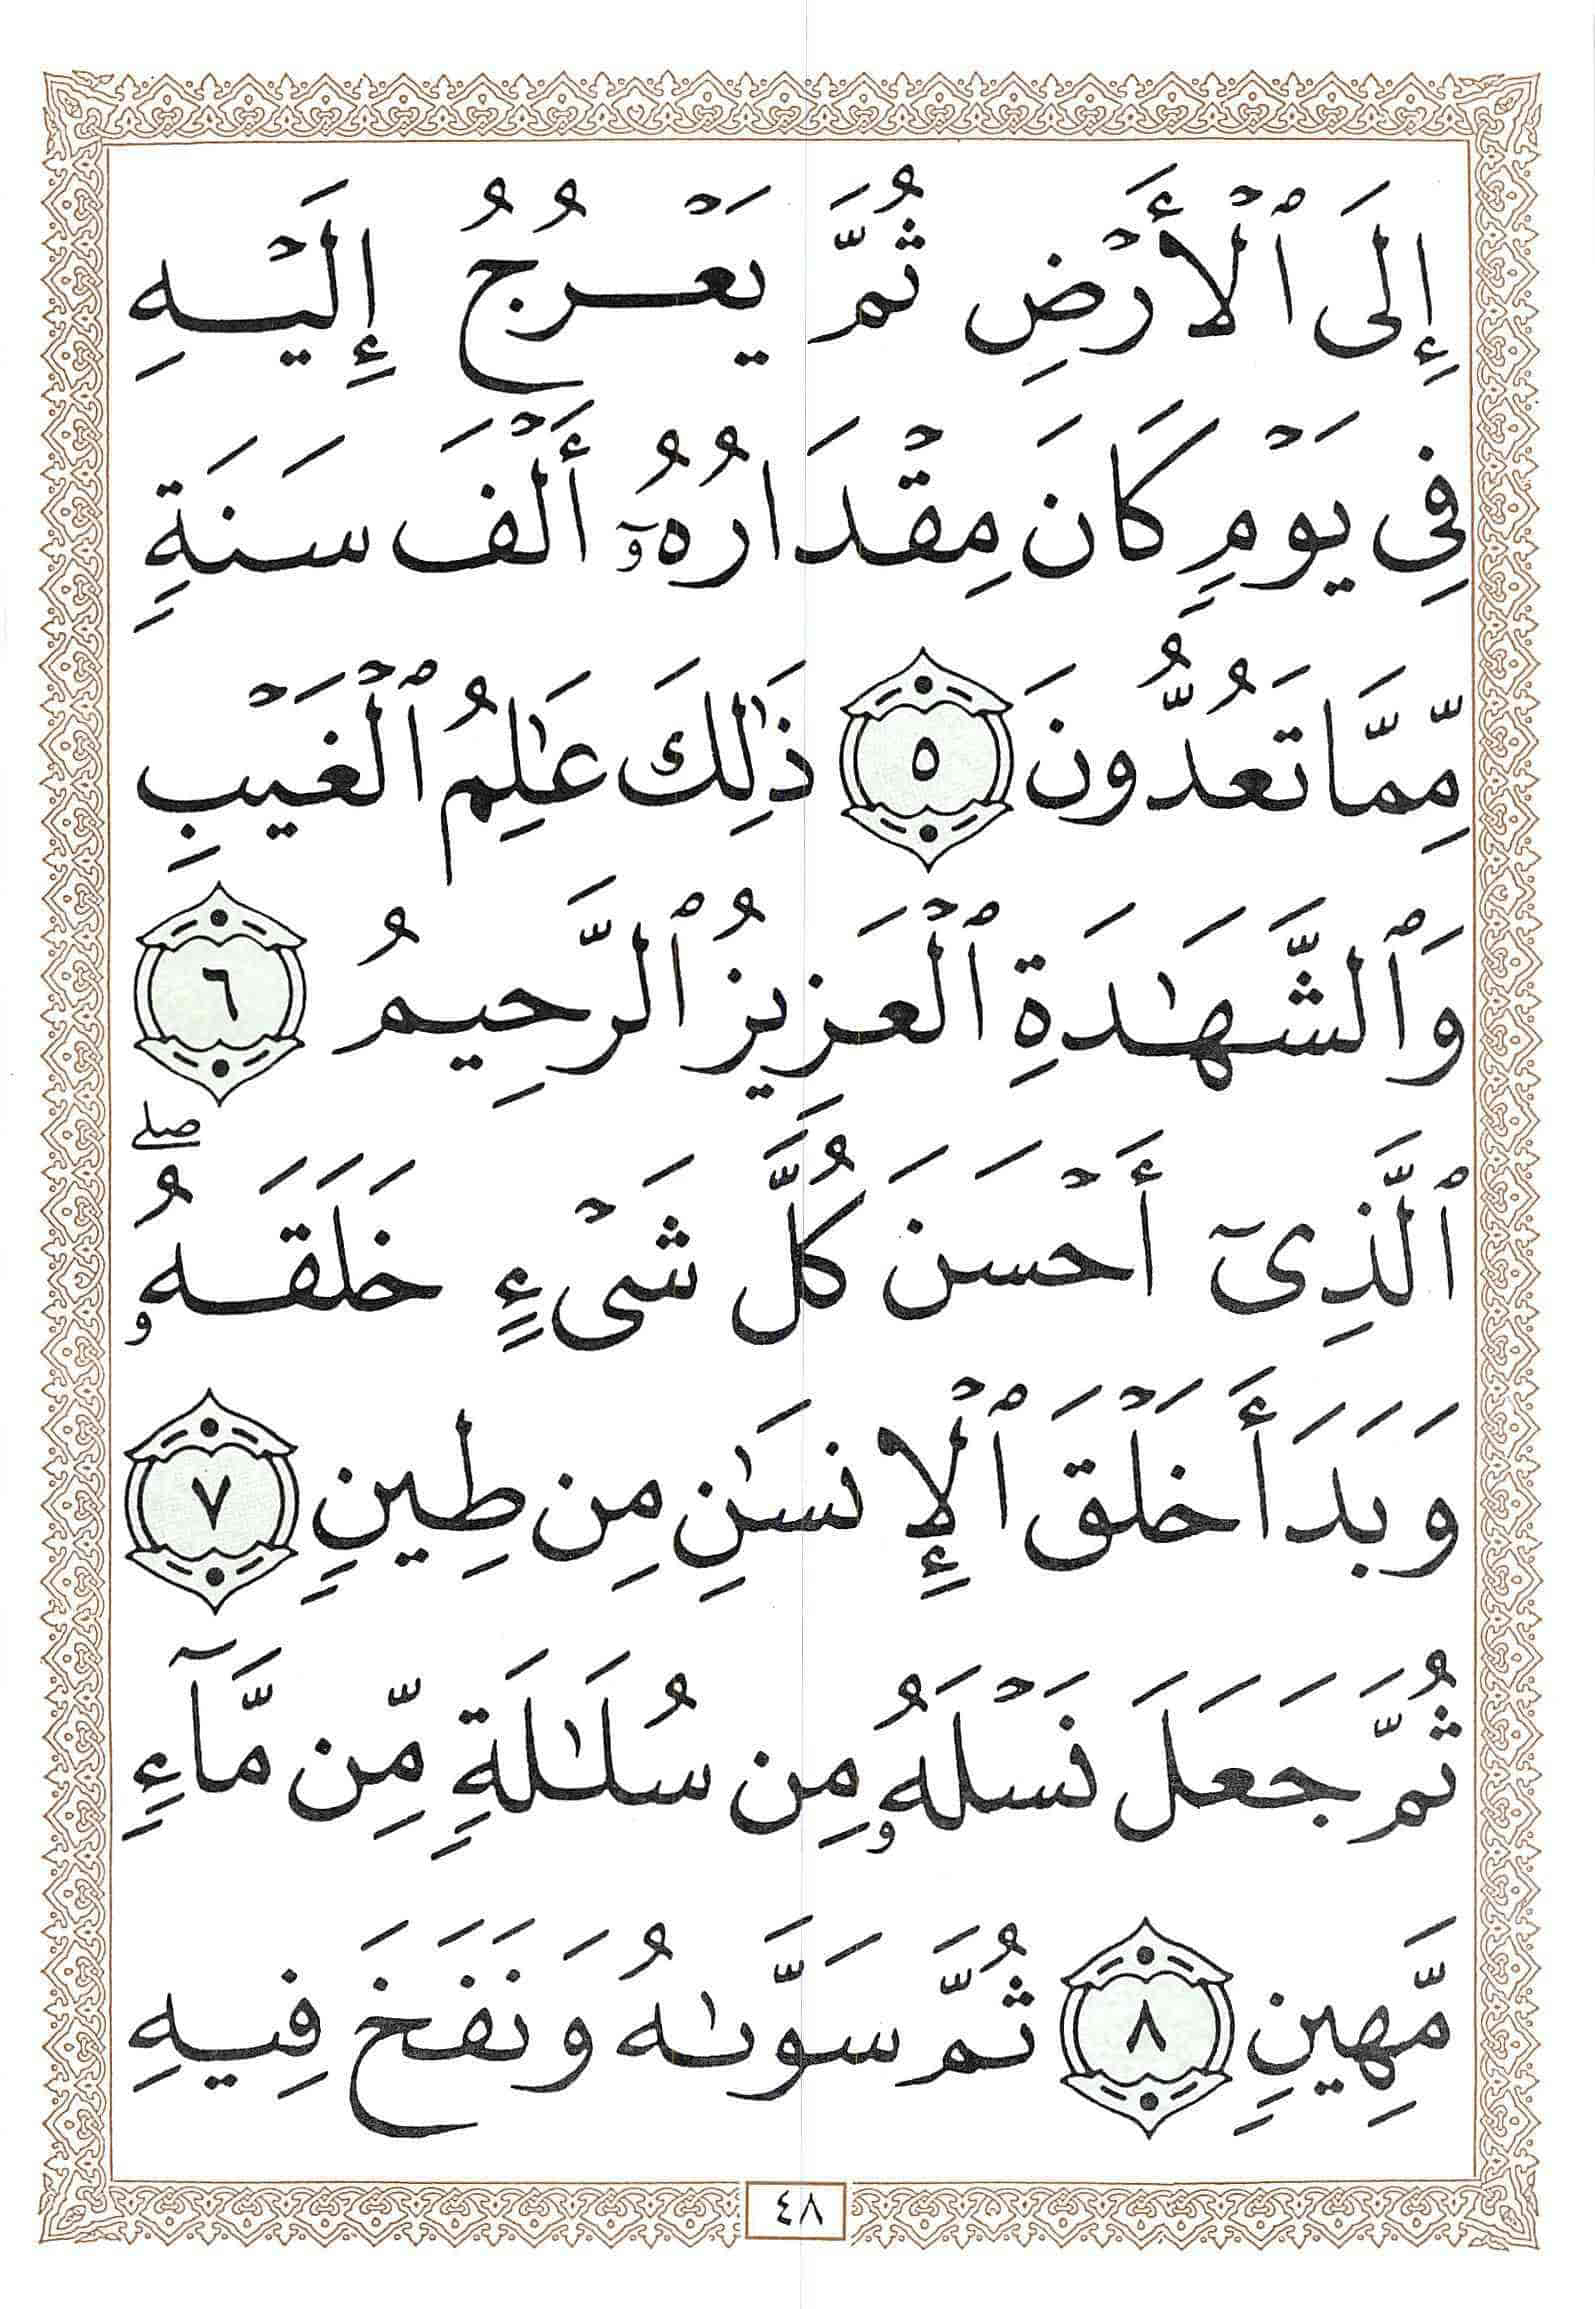 إِلَى ٱلْأَرْضِ ثُمَّ يَعْرُجُ إِلَيْهِ
فِى يَوْمٍ كَانَ مِقْدَارُهُۥٓ أَلْفَ سَنَةٍ
مِّمَّا تَعُدُّونَ ٥ ذَٰلِكَ عَٰلِمُ ٱلْغَيْبِ
وَٱلشَّهَٰدَةِ ٱلْعَزِيزُ ٱلرَّحِيمُ ٦
ٱلَّذِىٓ أَحْسَنَ كُلَّ شَىْءٍ خَلَقَهُۥۖ
وَبَدَأَ خَلْقَ ٱلْإِنسَٰنِ مِن طِينٍ ٧
ثُمَّ جَعَلَ نَسْلَهُۥ مِن سُلَٰلَةٍ مِّن مَّآءٍ
مَّهِينٍ ٨ ثُمَّ سَوَّىٰهُ وَنَفَخَ فِيهِ
٤٨